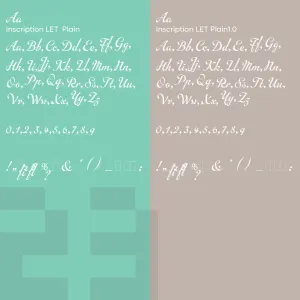 Aa
Inscription LET Plain
Aa, Bb, Cc, Dd, Ee, Ff, Gg,
Hh, Ii, Jj, Kk, Ll, Mm, Nn,
Oo, Pp, Qq, Rr, Ss, Tt, Uu,
Vv, Ww, Xx, Yy, Zz
0,1,2,3,4,5,6,7,8,9
& ' ( ) _ :
Aa
Inscription LET Plain1.0
Aa, Bb, Cc, Dd, Ee, Ff, Gg,
Hh, Ii, Jj, Kk, Ll, Mm, Nn,
Oo, Pp, Qq, Rr, Ss, Tt, Uu,
Vv, Ww, Xx, Yy, Zz
0,1,2,3,4,5,6,7,8,9
& ' ( ) _ :